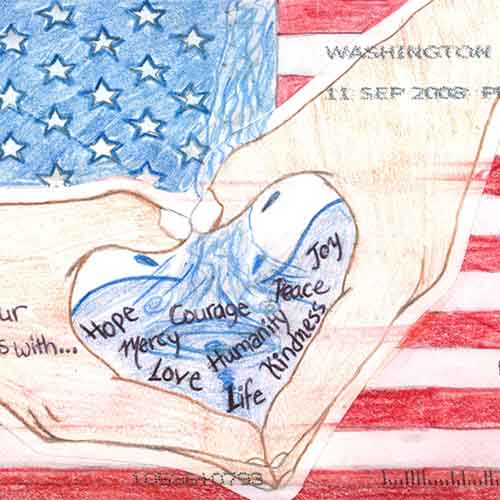 WASHINGTON
11 SEP 2008 P
ur
s with...
Hope
Mercy
Love
Courage
Humanity
Life
Joy
Peace
Kindness